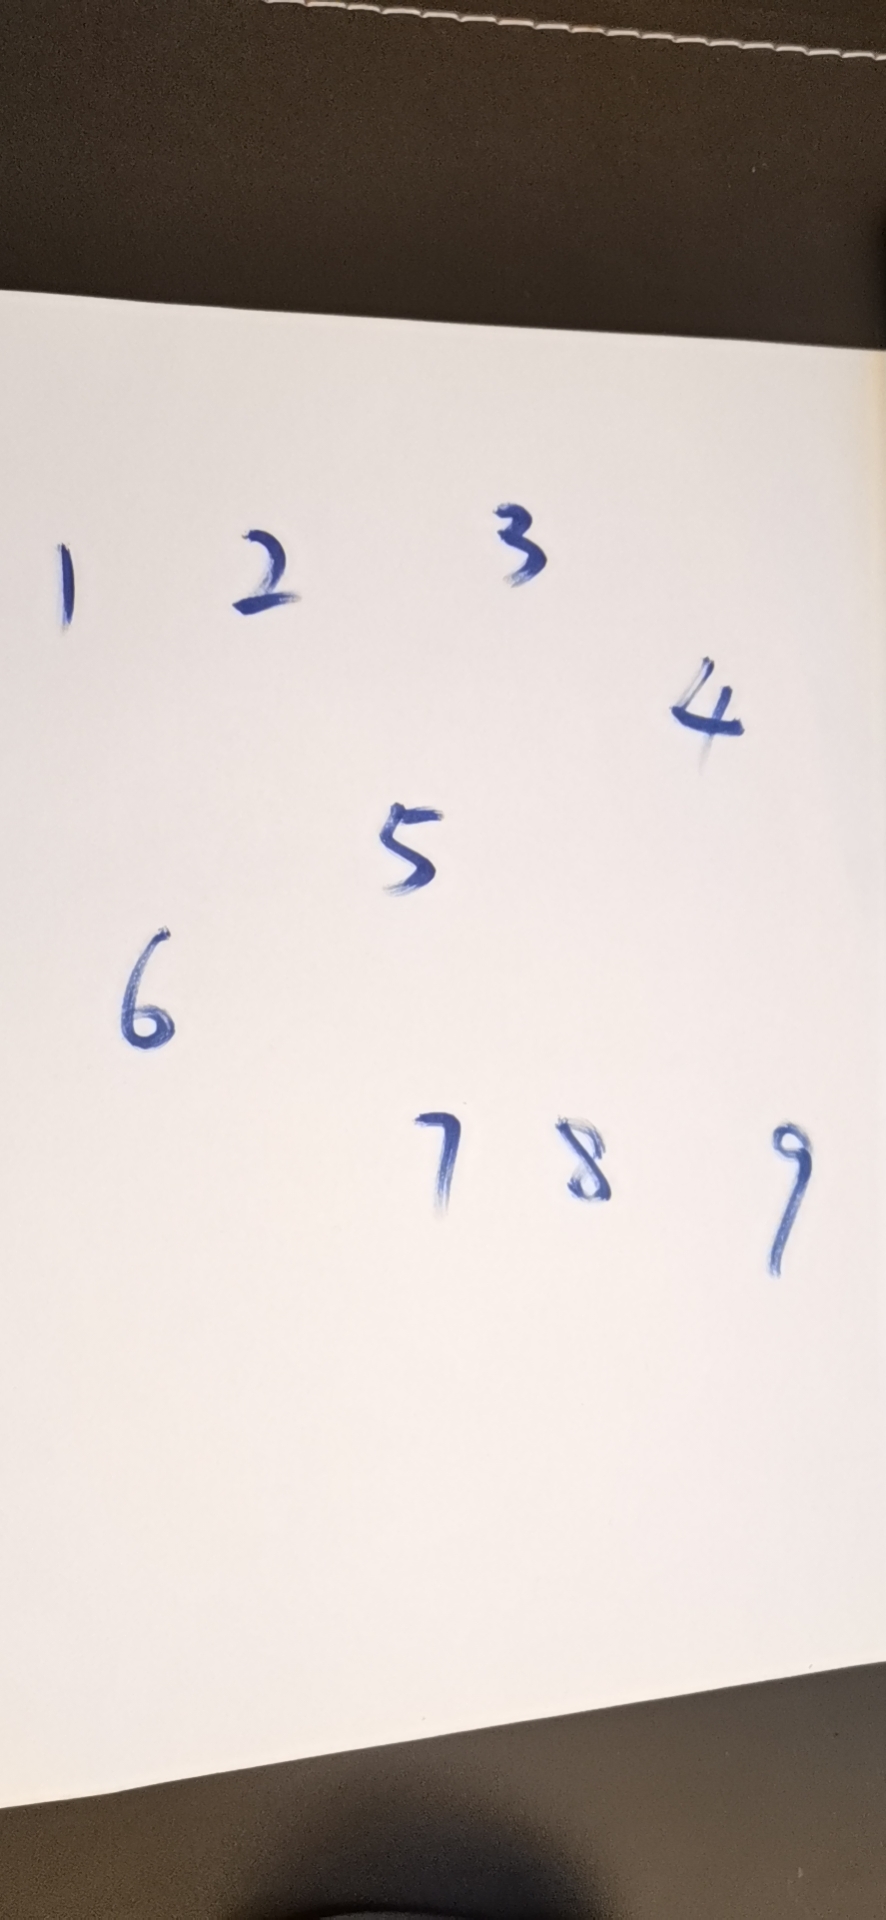 1 2 3
4
5
6
7 8 9